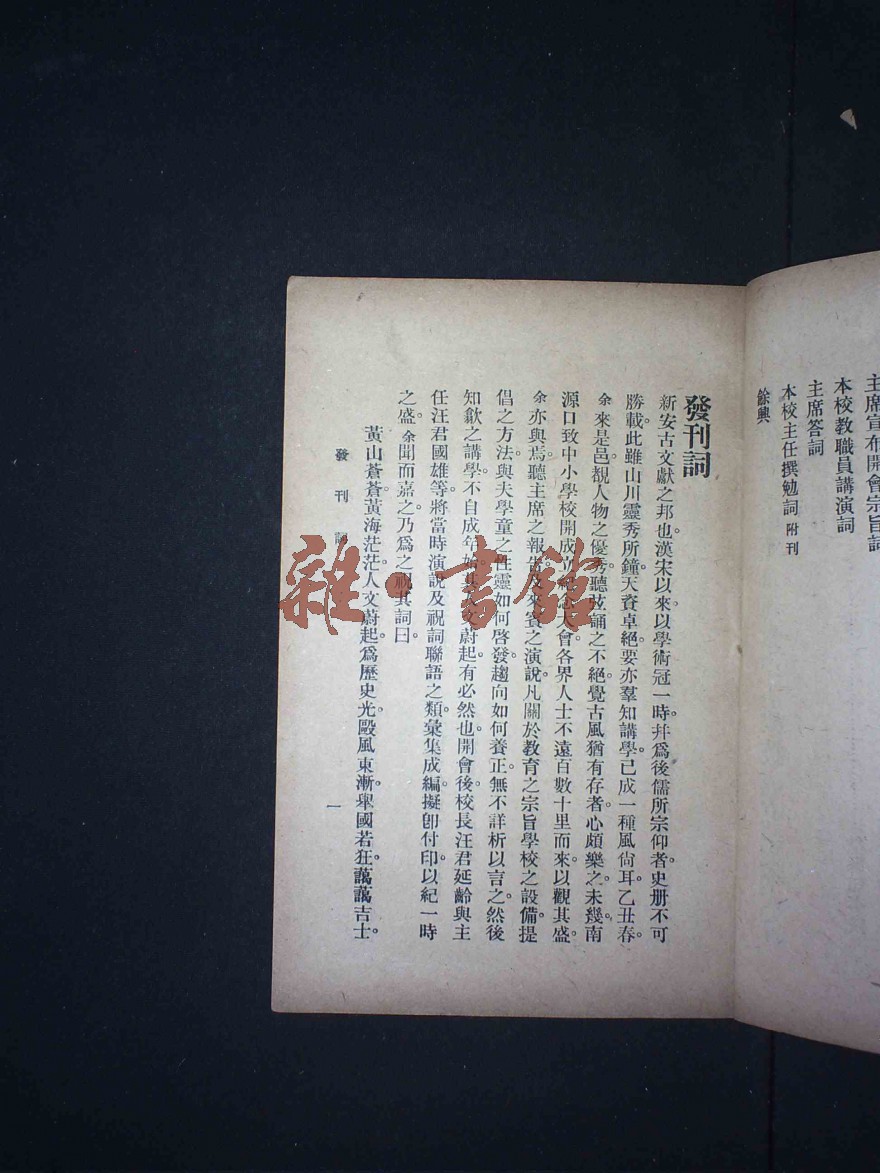 主席宣布開會宗旨詞
本校教職員講演詞
主席答詞
本校主任撰勉詞 附刊
餘興
發刊詞
新安古文獻之邦也。漢宋以來。以學術冠一時。幷爲後儒所宗仰者。史册不可
勝載。此雖山川靈秀所鐘。天資卓絕。要亦羣知講學。已成一種風尙耳。乙丑春。
余來是邑。覩人物之優秀。聽弦誦之不絕。覺古風猶有存者。心頗樂之。未幾。南
源口致中小學校開成立紀念大會。各界人士不遠百數十里而來。以觀其盛。
余亦與焉。聽主席之報告。及來賓之演說。凡關於敎育之宗旨學校之設備。提
倡之方法。與夫學童之性靈如何啓發。趨向如何養正。無不詳析以言之。然後
知歙之講學。不自成年始。其人文蔚起。有必然也。開會後。校長汪君延齡與主
任汪君國雄等。將當時演說及祝詞聯語之類。彙集成編。擬卽付印。以紀一時
之盛。余聞而嘉之。乃爲之祝。其詞曰
黃山蒼蒼。黃海茫茫。人文蔚起。爲歷史光。歐風東漸。舉國若狂。藹藹吉士。
發刊
一
雜·書館